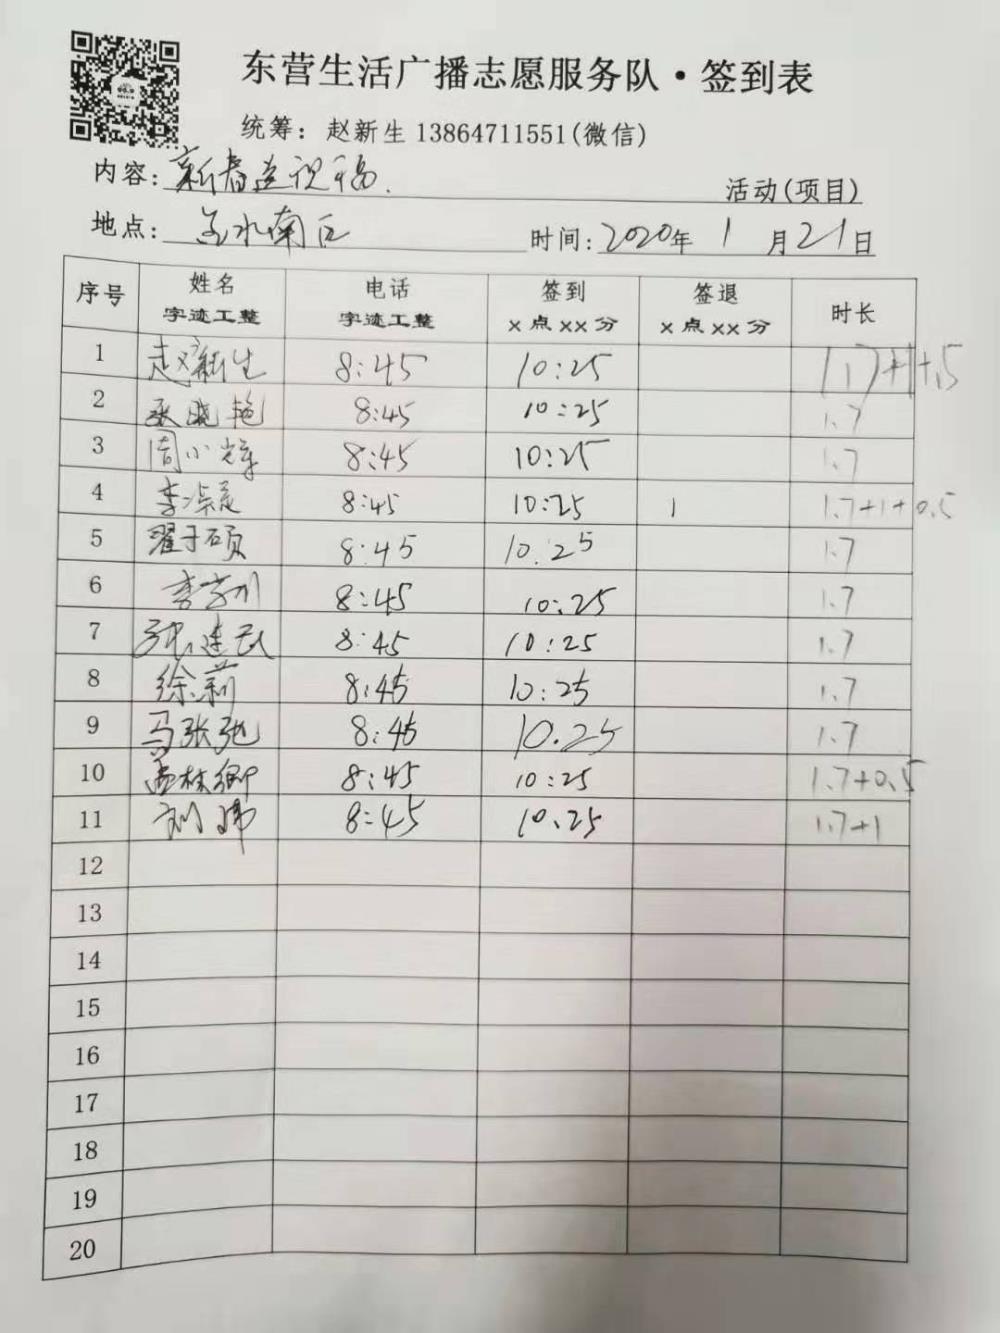 东营生活广播志愿服务队·签到表
统筹：赵新生 13864711551(微信)
内容：新春送祝福. 活动(项目)
地点：南区 时间：2020年 1月21日
序号 姓名 字迹工整 电话 字迹工整 签到 x 点 xx 分 签退 x 点 xx 分 时长
1 赵新生 8:45 10:25 1.7+1+.5
2 张晓艳 8:45 10:25 1.7
3 周小辉 8:45 10:25 1.7
4 李 8:45 10:25 1 1.7+1+0.5
5 翟子硕 8:45 10.25 1.7
6 李 8:45 10:25 1.7
7 张建民 8:45 10:25 1.7
8 徐莉 8:45 10:25 1.7
9 马张弛 8:45 10.25 1.7
10 林卿 8:45 10:25 1.7+0.5
11 刘玮 8:45 10.25 1.7+1
12
13
14
15
16
17
18
19
20